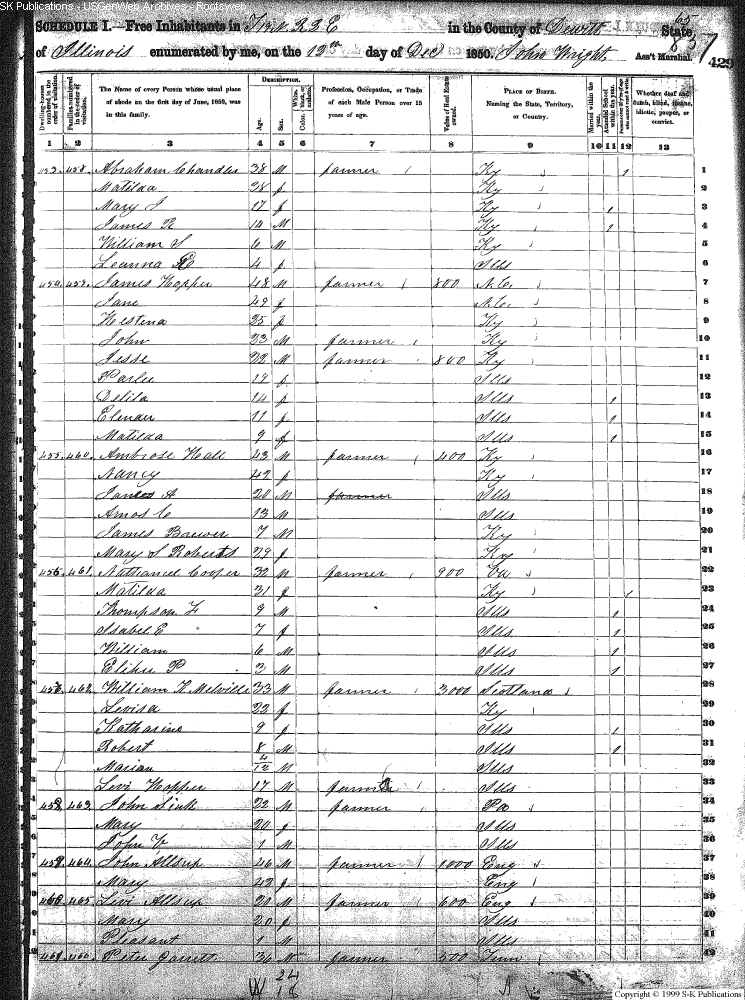 SK Publications - USGenWeb Archives - Rootsweb
SCHEDULE I.—Free Inhabitants in T19 N. R2 E in the County of Dewitt State
of Illinois enumerated by me, on the 12th day of Dec 1850. John Wright Ass't Marshal. 429
Dwelling-houses numbered in the order of visitation. Families numbered in the order of visitation. The Name of every Person whose usual place of abode on the first day of June, 1850, was in this family. Description. Age. Sex. White, Color, black, or mulatto. Profession, Occupation, or Trade of each Male Person over 15 years of age. Value of Real Estate owned. Place of Birth. Naming the State, Territory, or Country. Married within the year. Attended School within the year. Whether deaf and dumb, blind, insane, idiotic, pauper, or convict.
1 2 3 4 5 6 7 8 9 10 11 12 13
458 Abraham Chandler 38 M farmer Ky 1 1
Matilda 28 f Ky 2
Mary J 17 f Ky 1 3
James R 14 M Ky 1 4
William S 6 M Ky 5
Leanna E 4 f Ills 6
454 James Hopper 48 M farmer 800 N.C. 7
Jane 49 f N.C. 8
Hestena 25 f Ky 9
John 23 M farmer Ky 10
Jesse 22 M farmer 800 Ky 11
Parlee 19 f Ills 12
Delila 14 f Ills 1 13
Elender 11 f Ills 1 14
Matilda 9 f Ills 1 15
455 460 Ambrose Hall 43 M farmer 400 Ky 16
Nancy 42 f Ky 17
James A 20 M farmer Ills 18
Amos C 13 M Ills 19
James Brewer 7 M Ky 20
Mary S Roberts 29 f Ky 21
456 461 Nathaniel Cooper 32 M farmer 900 Va 22
Matilda 31 f Ky 1 23
Thompson F 9 M Ills 1 24
Isabel E 7 f Ills 1 25
William 6 M Ills 1 26
Elihu P 3 M Ills 1 27
462 William K Melville 33 M farmer 3000 Scotland 28
Levisa 22 f Ky 29
Katharine 9 f Ills 1 30
Robert 8 M Ills 1 31
Marian 4/12 M Ills 32
Levi Hopper 17 M farmer Ills 33
458 463 John Sink 32 M farmer Pa 34
Mary 20 f Ills 35
John V 1 M Ills 36
459 464 John Allsup 46 M farmer 1000 Eng 37
Mary 42 f Eng 38
460 465 Levi Allsup 20 M farmer 600 Eng 39
Mary 20 f Ills 40
Pleasant 1 M Ills 41
Peter Jarrett 36 M farmer 500 Tenn 42
Copyright © 1999 S-K Publications